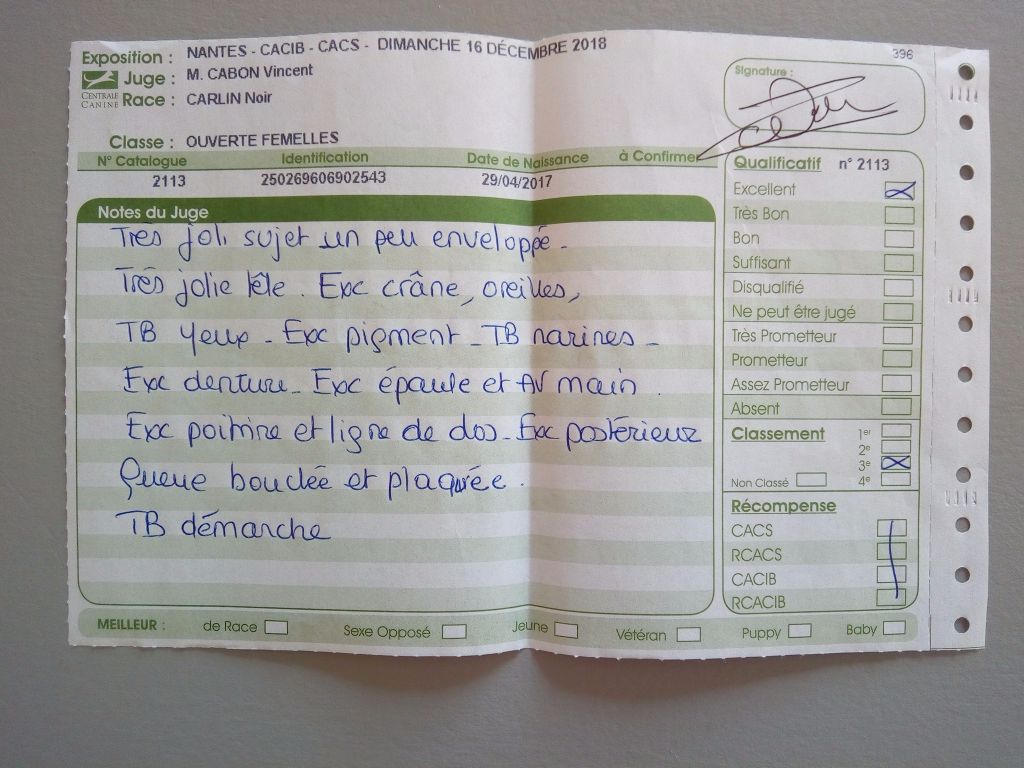 Exposition : NANTES - CACIB - CACS - DIMANCHE 16 DÉCEMBRE 2018
396
CENTRALE CANINE
Juge : M. CABON Vincent
Race : CARLIN Noir
Signature :
Classe : OUVERTE FEMELLES
N° Catalogue Identification Date de Naissance à Confirmer
2113 250269606902543 29/04/2017
Notes du Juge
Très joli sujet un peu enveloppé -
Très jolie tête. Exc crâne, oreilles,
TB yeux - Exc pigment - TB narines -
Exc denture - Exc épaule et AV main.
Exc poitrine et ligne de dos - Exc postérieur
Queue bouclée et plaquée.
TB démarche
Qualificatif n° 2113
Excellent
Très Bon
Bon
Suffisant
Disqualifié
Ne peut être jugé
Très Prometteur
Prometteur
Assez Prometteur
Absent
Classement 1er
2e
3e
Non Classé 4e
Récompense
CACS
RCACS
CACIB
RCACIB
MEILLEUR : de Race Sexe Opposé Jeune Vétéran Puppy Baby